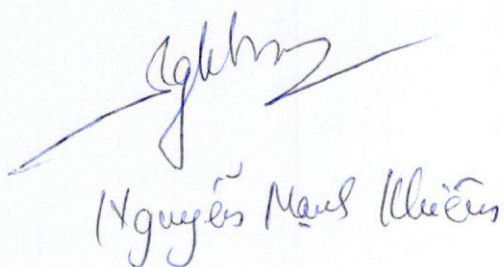 Nguyễn Mạnh Khiêm